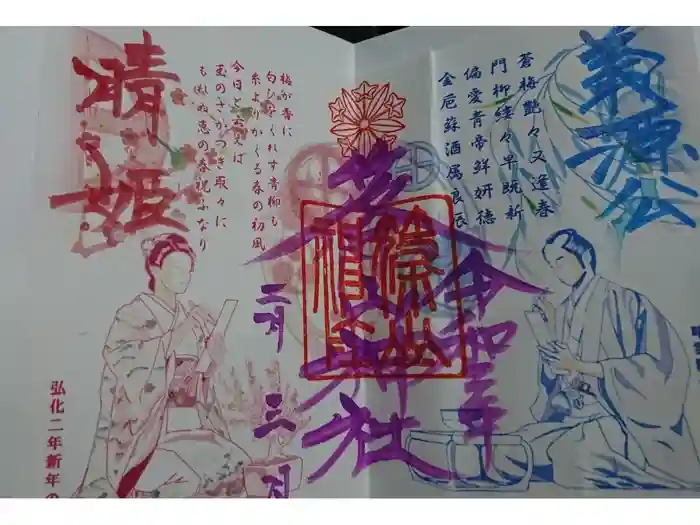 義源公
蒼梅艶々又逢春
門柳縷々早既新
偏愛青帝鮮妍徳
金卮蘇酒属良辰
令和三年
篠山神社
二月
梅が香に
糸よりかくる春の初風
今日と云えば
玉のさかつき取々に
もれぬ恵の春祝ふなり
晴姫
弘化二年新年の